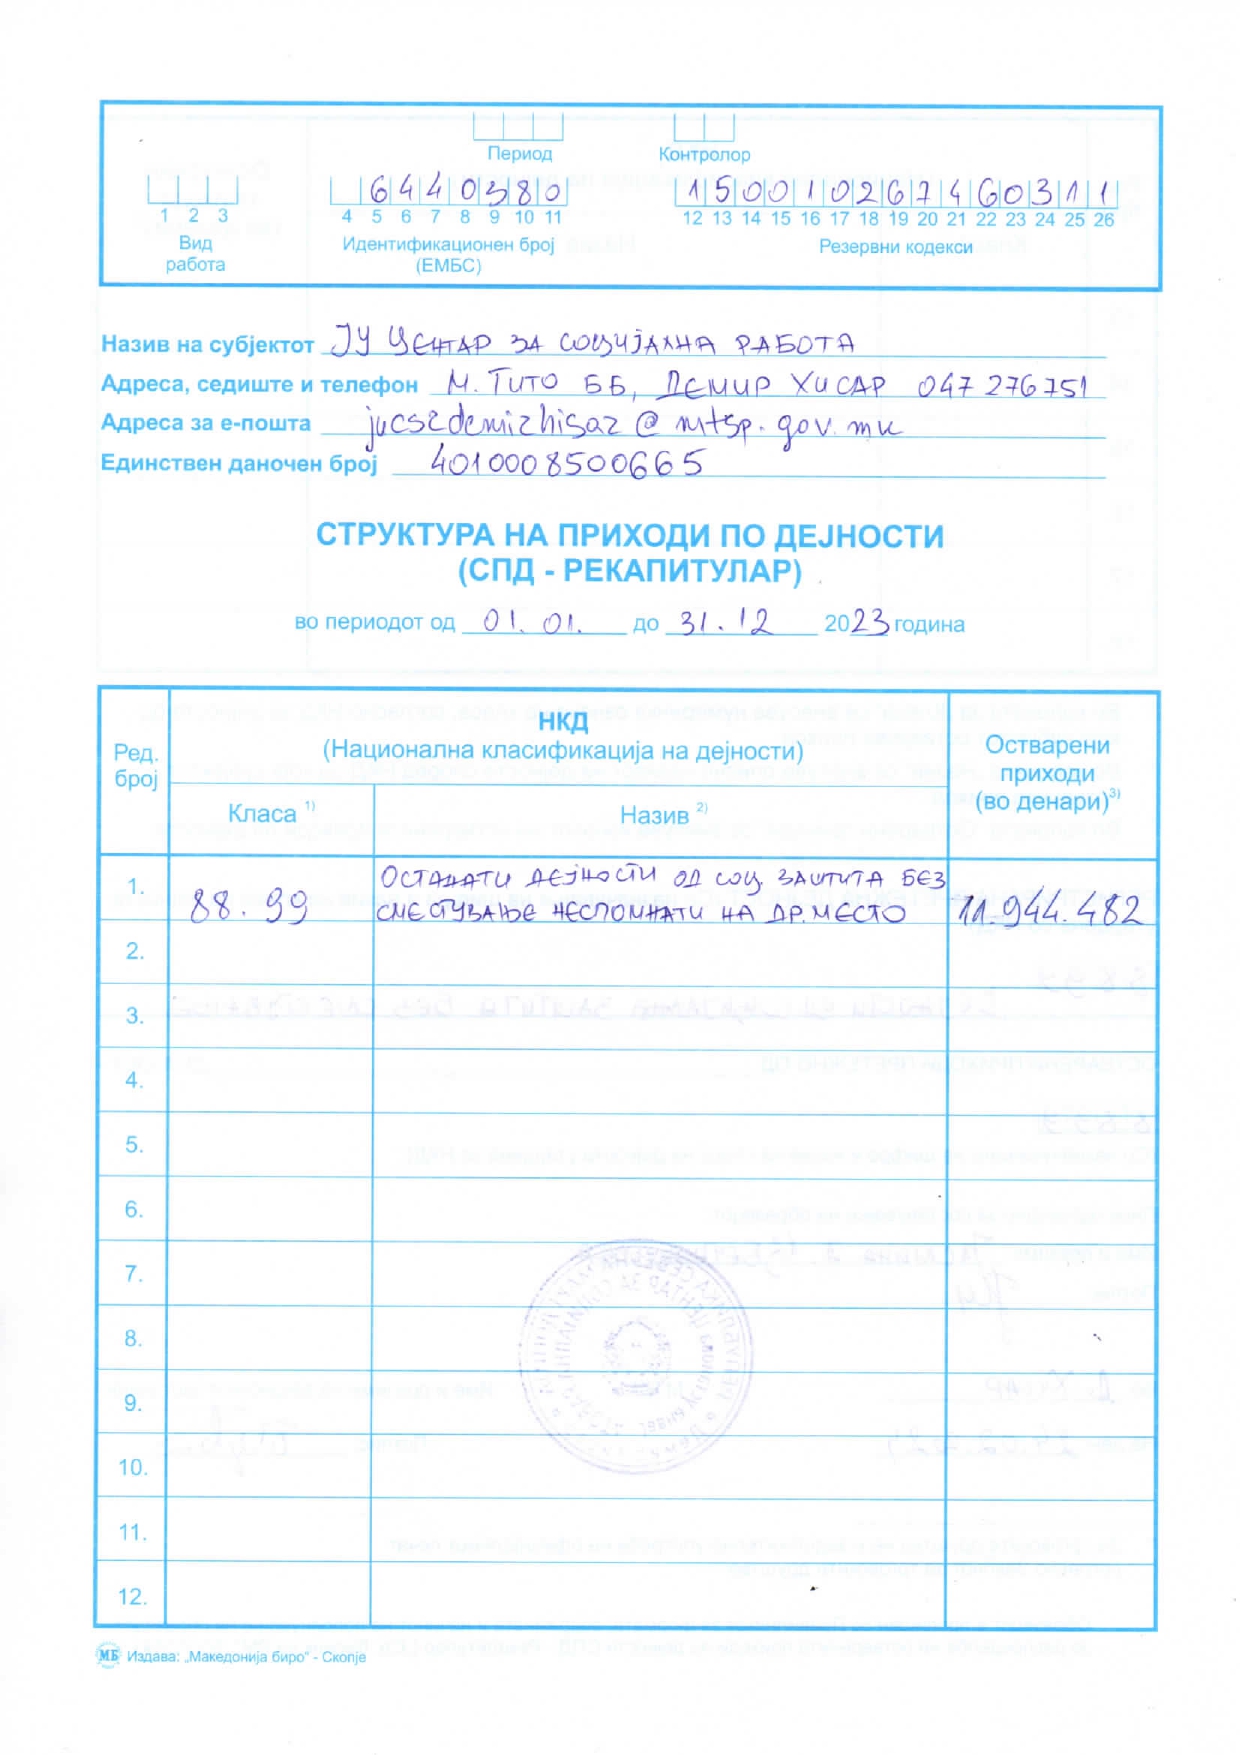 Период
Контролор
6440380
150010267460311
1 2 3
4 5 6 7 8 9 10 11
12 13 14 15 16 17 18 19 20 21 22 23 24 25 26
Вид
работа
Идентификационен број
(ЕМБС)
Резервни кодекси
Назив на субјектот ЈУ ЦЕНТАР ЗА СОЦИЈАЛНА РАБОТА
Адреса, седиште и телефон М. ТИТО ББ, ДЕМИР ХИСАР 047 276751
Адреса за е-пошта jucsrdemirhisar@mtsp.gov.mk
Единствен даночен број 4010008500665
СТРУКТУРА НА ПРИХОДИ ПО ДЕЈНОСТИ
(СПД - РЕКАПИТУЛАР)
во периодот од 01.01. до 31.12 2023 година
Ред.
број
НКД
(Национална класификација на дејности)
Класа 1)
Назив 2)
Остварени
приходи
(во денари)3)
1. 88.99 ОСТАНАТИ ДЕЈНОСТИ ОД СОЦ. ЗАШТИТА БЕЗ
СМЕСТУВАЊЕ НЕСПОМНАТИ НА ДР. МЕСТО 11.944.482
2.
3.
4.
5.
6.
7.
8.
9.
10.
11.
12.
МБ Издава: „Македонија биро" - Скопје